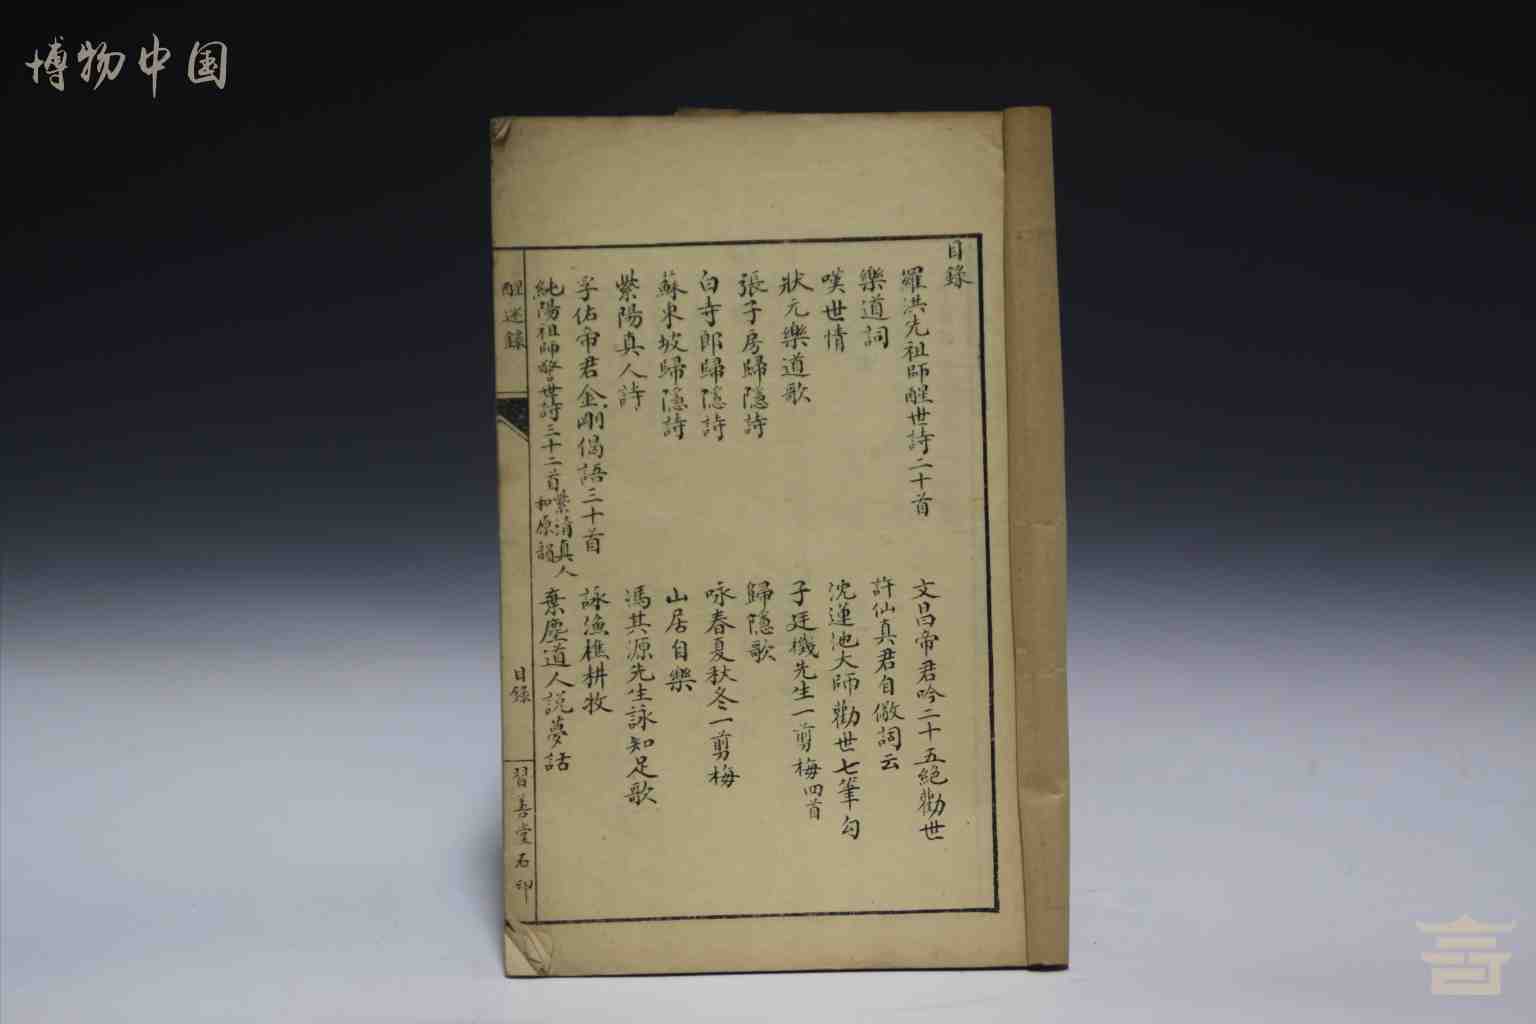 博物中国
目錄
羅洪先祖師醒世詩二十首
文昌帝君吟二十五絕勸世
樂道詞
許仙真君自儆詞云
嘆世情
沈蓮池大師勸世七筆勾
狀元樂道歌
子廷檥先生一剪梅四首
張子房歸隱詩
歸隱歌
白寺郎歸隱詩
咏春夏秋冬一剪梅
蘇東坡歸隱詩
山居自樂
紫陽真人詩
馮其源先生詠知足歌
孚佑帝君金剛偈語三十首
詠漁樵耕牧
純陽祖師警世詩三十二首 紫清真人和原韻
棄塵道人説夢話
醒迷錄
目錄
習善堂石印